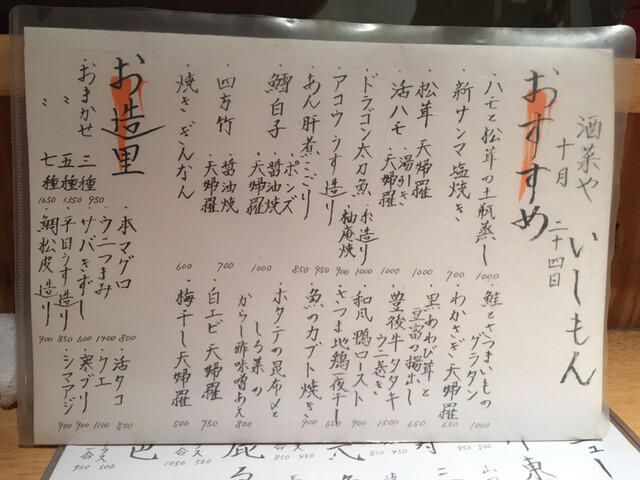 酒菜や いしもん
十月 二十四日
おすすめ
・ハモと松茸の土瓶蒸し 1000
・新サンマ塩焼き 700
・松茸 天婦羅 1000
・活ハモ ・湯引き ・天婦羅 1000
・ドラゴン太刀魚 ・お造り 1000 ・柚庵焼 900
・アコウ うす造り 950
・あん肝煮こごり 850
・鱈白子 ・ポンズ ・醤油焼 ・天婦羅 1000
・四方竹 ・醤油焼 ・天婦羅 700
・焼きぎんなん 600
・鮭とさつまいものグラタン
・わかさぎ天婦羅
・黒あわび茸と豆富の揚出し
・豊後牛タタキ ウニ巻き 1500
・和風 鴨ロースト
・さつま地鶏一夜干し
・魚のカブト焼き
・ホタテの昆布〆としろ菜のからし酢味噌あえ 800
・白エビ天婦羅 750
・梅干し天婦羅 500
お造里
おまかせ 三種 950
〃 五種 1350
〃 七種 1650
・本マグロ 800
・ウニつまみ 1400
・サバきずし 600
・平目うす造り 850
・鯛松皮造り 900
・活タコ 800
・クエ 1100
・寒ブリ 900
・シマアジ 900